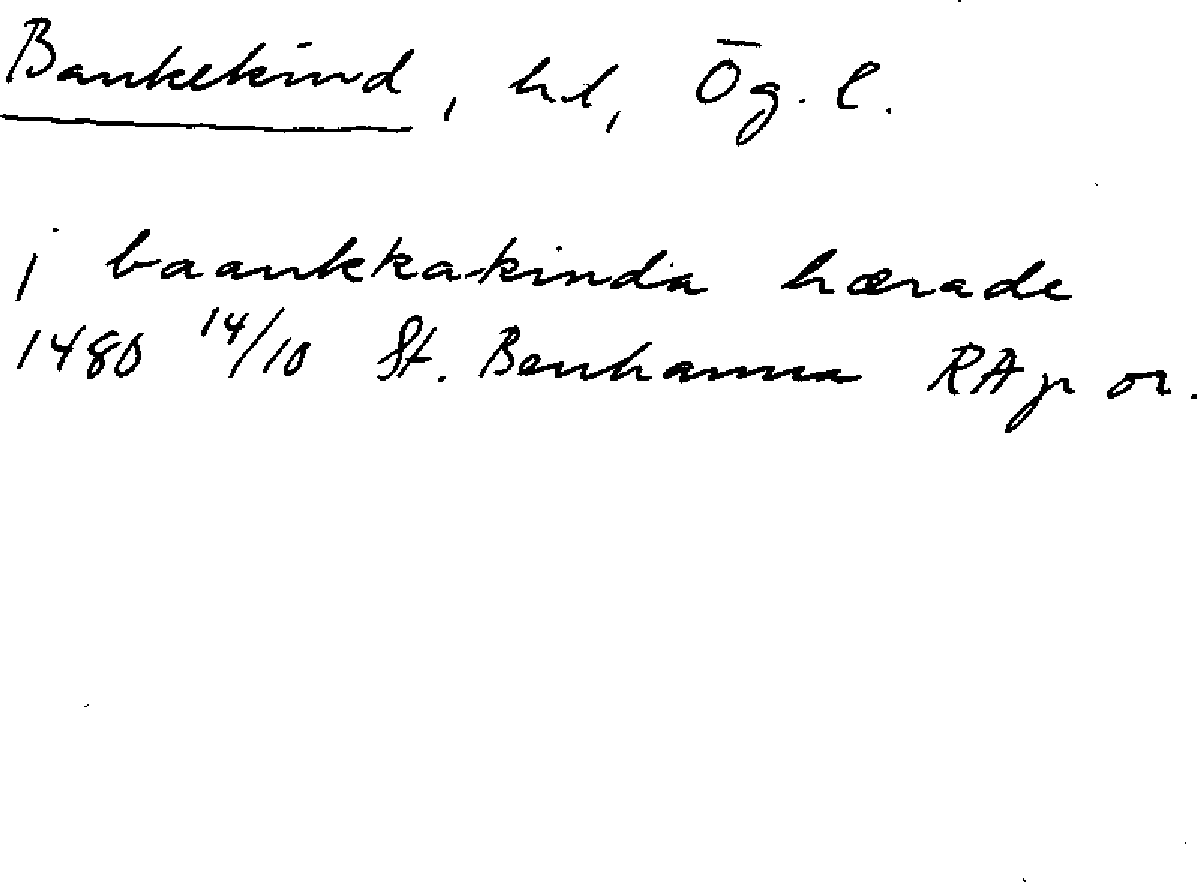 Bankekind, hd, Ög. l.
j baankkakinda hærade
1480 14/10 St. Benhamra RAp or.